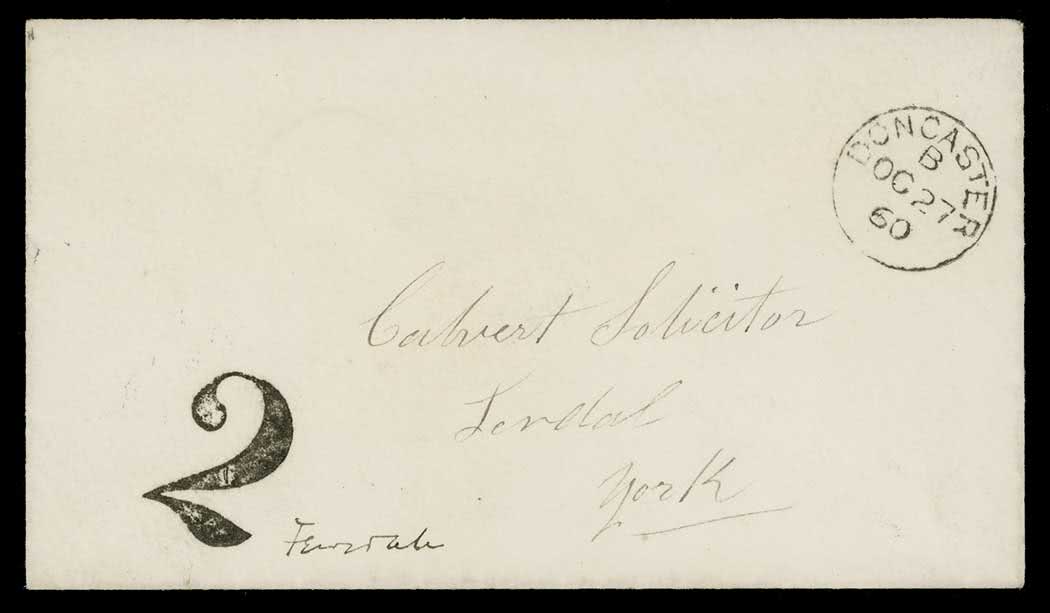 DONCASTER
B
OC 27
60
Calvert Solicitor
York
2